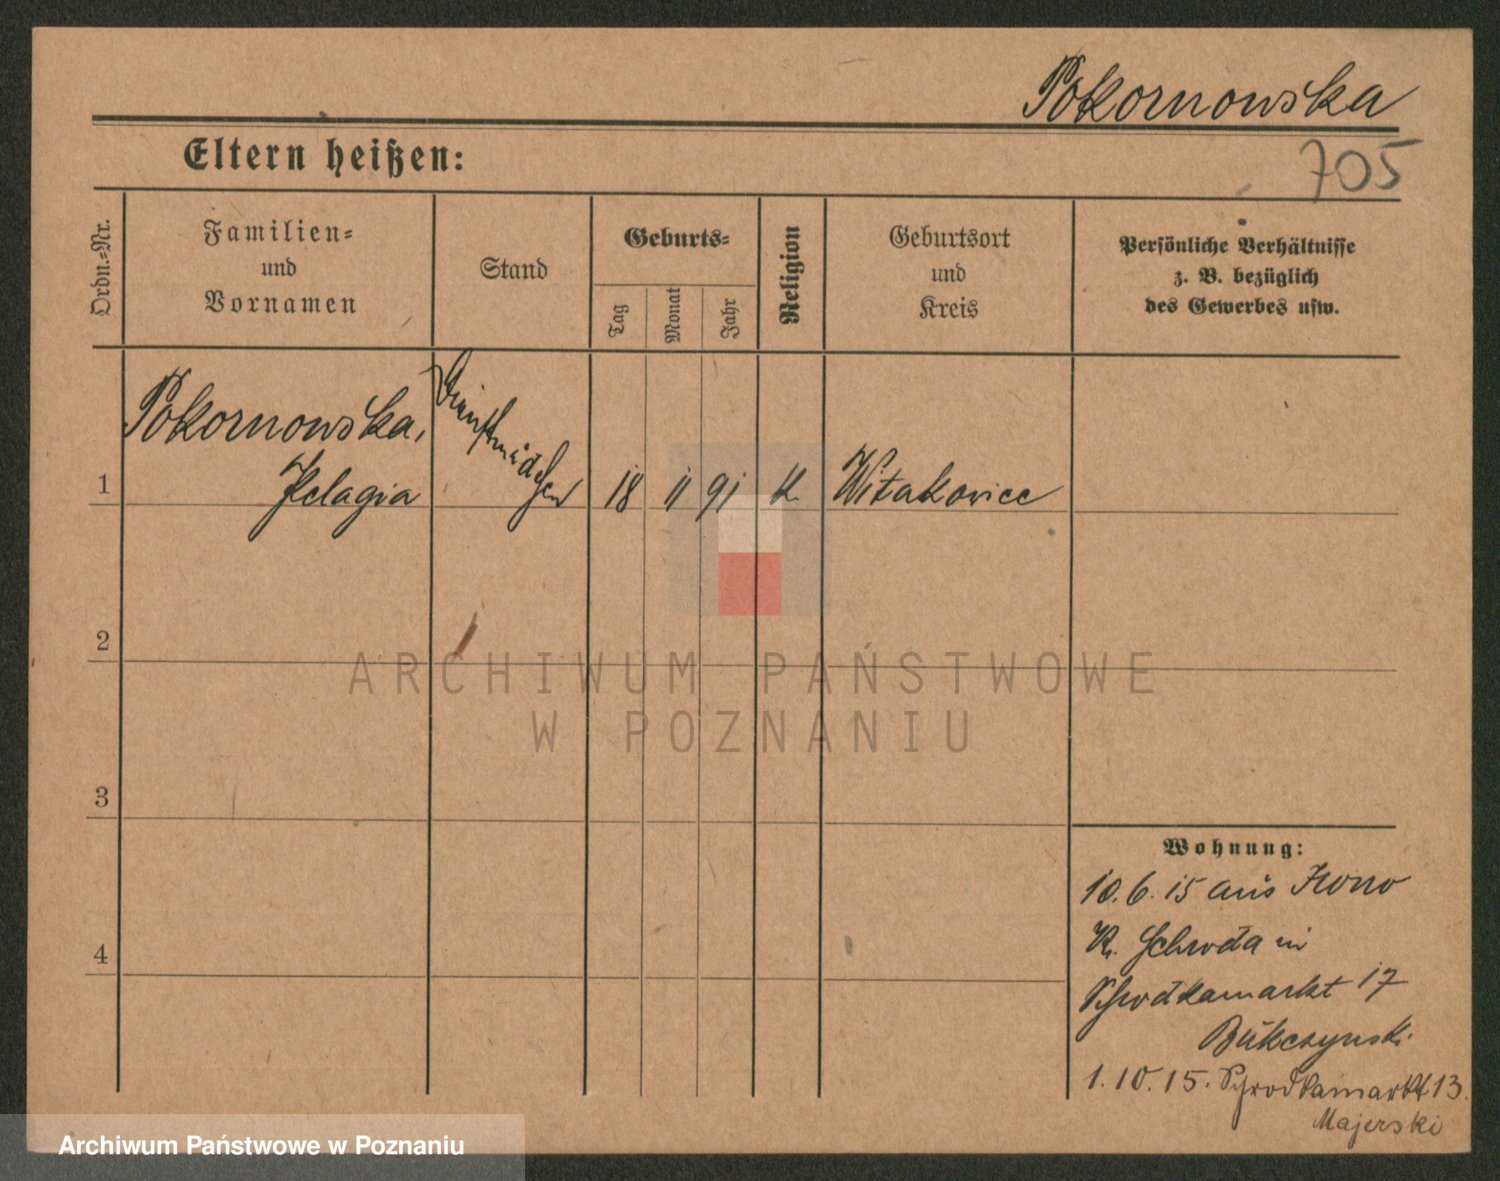 Pokornowska
705
Eltern heißen:
Ordn.-Nr.
Familien-
und
Vornamen
Stand
Geburts-
Tag
Monat
Jahr
Religion
Geburtsort
und
Kreis
Persönliche Verhältnisse
z. B. bezüglich
des Gewerbes usw.
Pokornowska,
1 Pelagia Dienstmädchen 18 11 91 K Witakovice
2
ARCHIWUM PAŃSTWOWE
W POZNANIU
3
Wohnung:
10. 6. 15 aus
Kr. Schroda in
4
Schrodkamarkt 17
Bukczynski
1. 10. 15. Schrodkamarkt 13.
Majerski
Archiwum Państwowe w Poznaniu